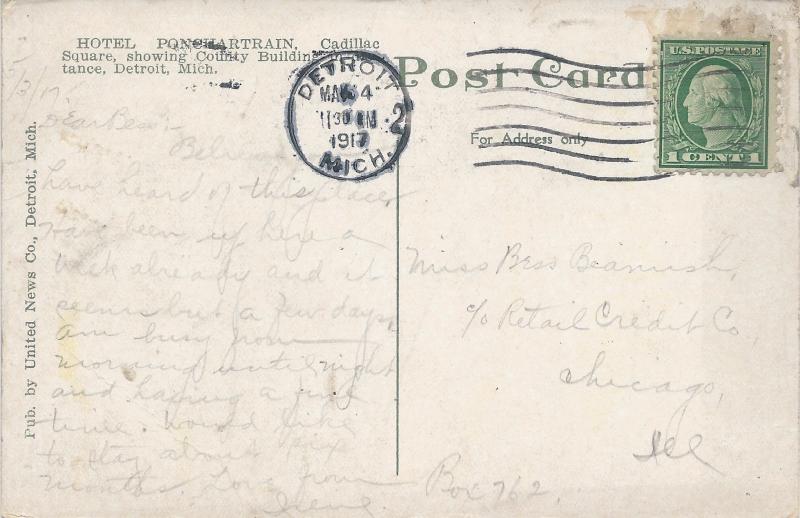 HOTEL PONCHARTRAIN, Cadillac
Square, showing County Building
tance, Detroit, Mich.
Pub. by United News Co., Detroit, Mich.
Post Card
For Address only
DETROIT
1130
1917
MICH.
2
U.S. POSTAGE
1 CENT 1
Dear Bess:-
have heard of this place,
Have been up here a
week already and it
seems but a few days,
am busy from
morning until night
and having a fine
time. Would like
to stay about six
months. Love from
Irene.
Miss Bess Beamish,
c/o Retail Credit Co,
Chicago,
Ill
Box 762.